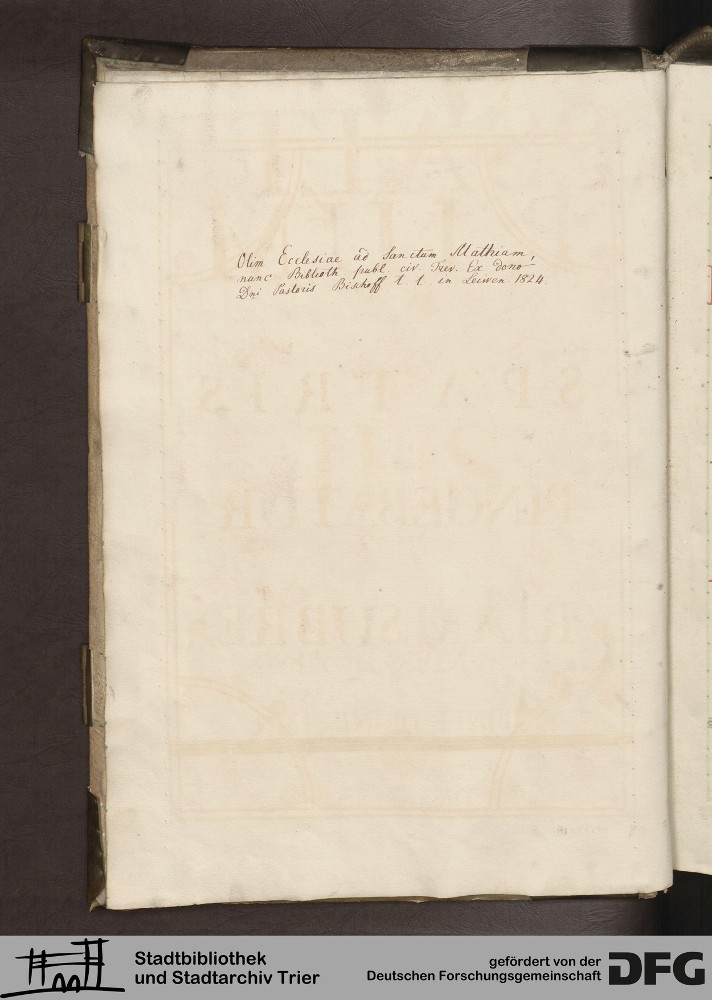 Olim Ecclesiae ad Sanctum Mathiam,
nunc Biblioth. publ. civ. Trev. Ex dono
Dni Pastoris Bischoff t. t. in Leiwen 1824.
S P A T R I S
PINGEBATUR
Stadtbibliothek
und Stadtarchiv Trier
gefördert von der
Deutschen Forschungsgemeinschaft
DFG